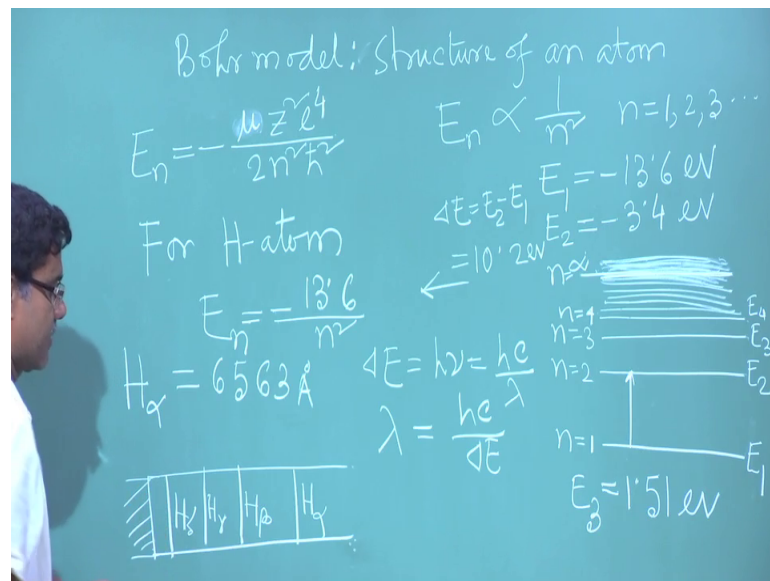 Bohr model: Structure of an atom
En = - μ z²e⁴ / 2n²ħ²
En ∝ 1/n² n=1,2,3...
E1 = -13.6 eV
E2 = -3.4 eV
ΔE = E2-E1
= 10.2 eV
For H-atom
En = - 13.6 / n²
Hα = 6563 Å
ΔE = hν = hc/λ
λ = hc/ΔE
n=∝
n=4 E4
n=3 E3
n=2 E2
n=1 E1
E3 = 1.51 eV
Hδ Hγ Hβ Hα